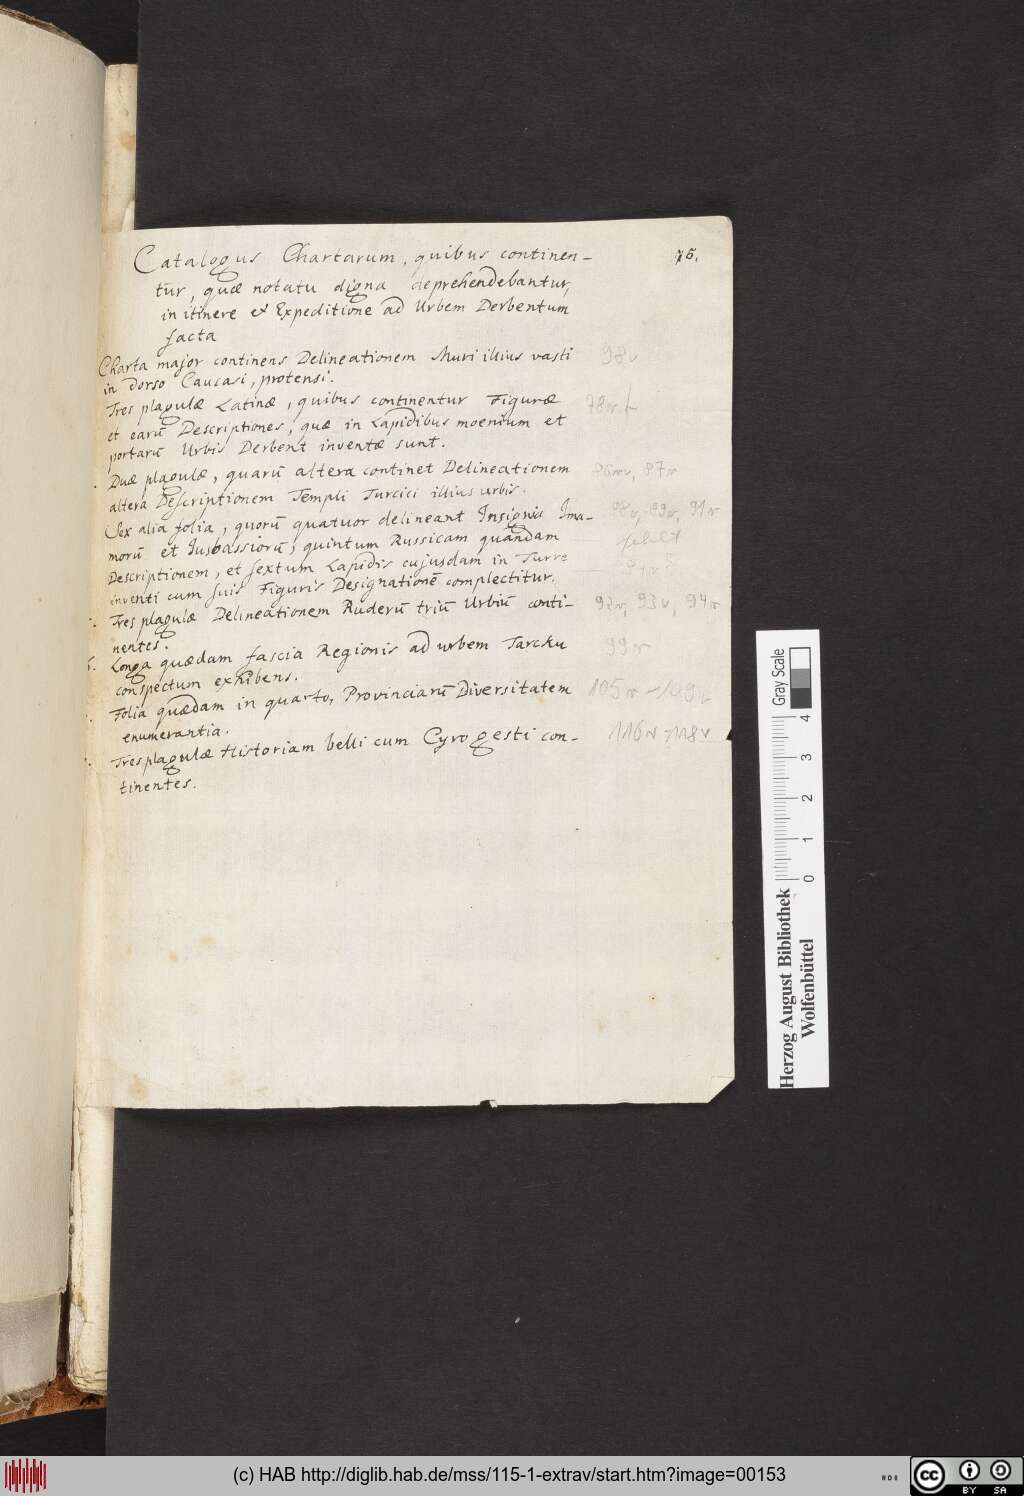 75.
Catalogus Chartarum, quibus continen-
tur, quæ notatu digna deprehendebantur,
in itinere et Expeditione ad Urbem Derbentum
facta
Charta major continens Delineationem Muri illius vasti 98v
in dorso Caucasi, protensi.
Tres plagulæ Latinæ, quibus continentur Figuræ
et earū Descriptiones, quæ in Lapidibus moenium et
portarū Urbis Derbent inventæ sunt.
Duæ plagulæ, quarū altera continet Delineationem 87r
altera Descriptionem Templi Turcici illius urbis.
Sex alia folia, quorū quatuor delineant Insignia Ima- 91r
morū et Jusbassiorū; quintum Russicam quandam fehlt
Descriptionem, et sextum Lapidis cujusdam in Turre
inventi cum suis Figuris Designationē complectitur.
Tres plagulæ Delineationem Ruderū triū Urbiū conti- 92r, 93v, 94r
nentes.
Longa quædam fascia Regionis ad urbem Tarcku 99r
conspectum exhibens.
Folia quædam in quarto, Provinciarū Diversitatem 105r-109v
enumerantia.
Tres plagulæ Historiam belli cum Cyro gesti con- 116r-118v
tinentes.
Gray Scale
0 1 2 3 4
Herzog August Bibliothek
Wolfenbüttel
(c) HAB http://diglib.hab.de/mss/115-1-extrav/start.htm?image=00153
cc BY SA